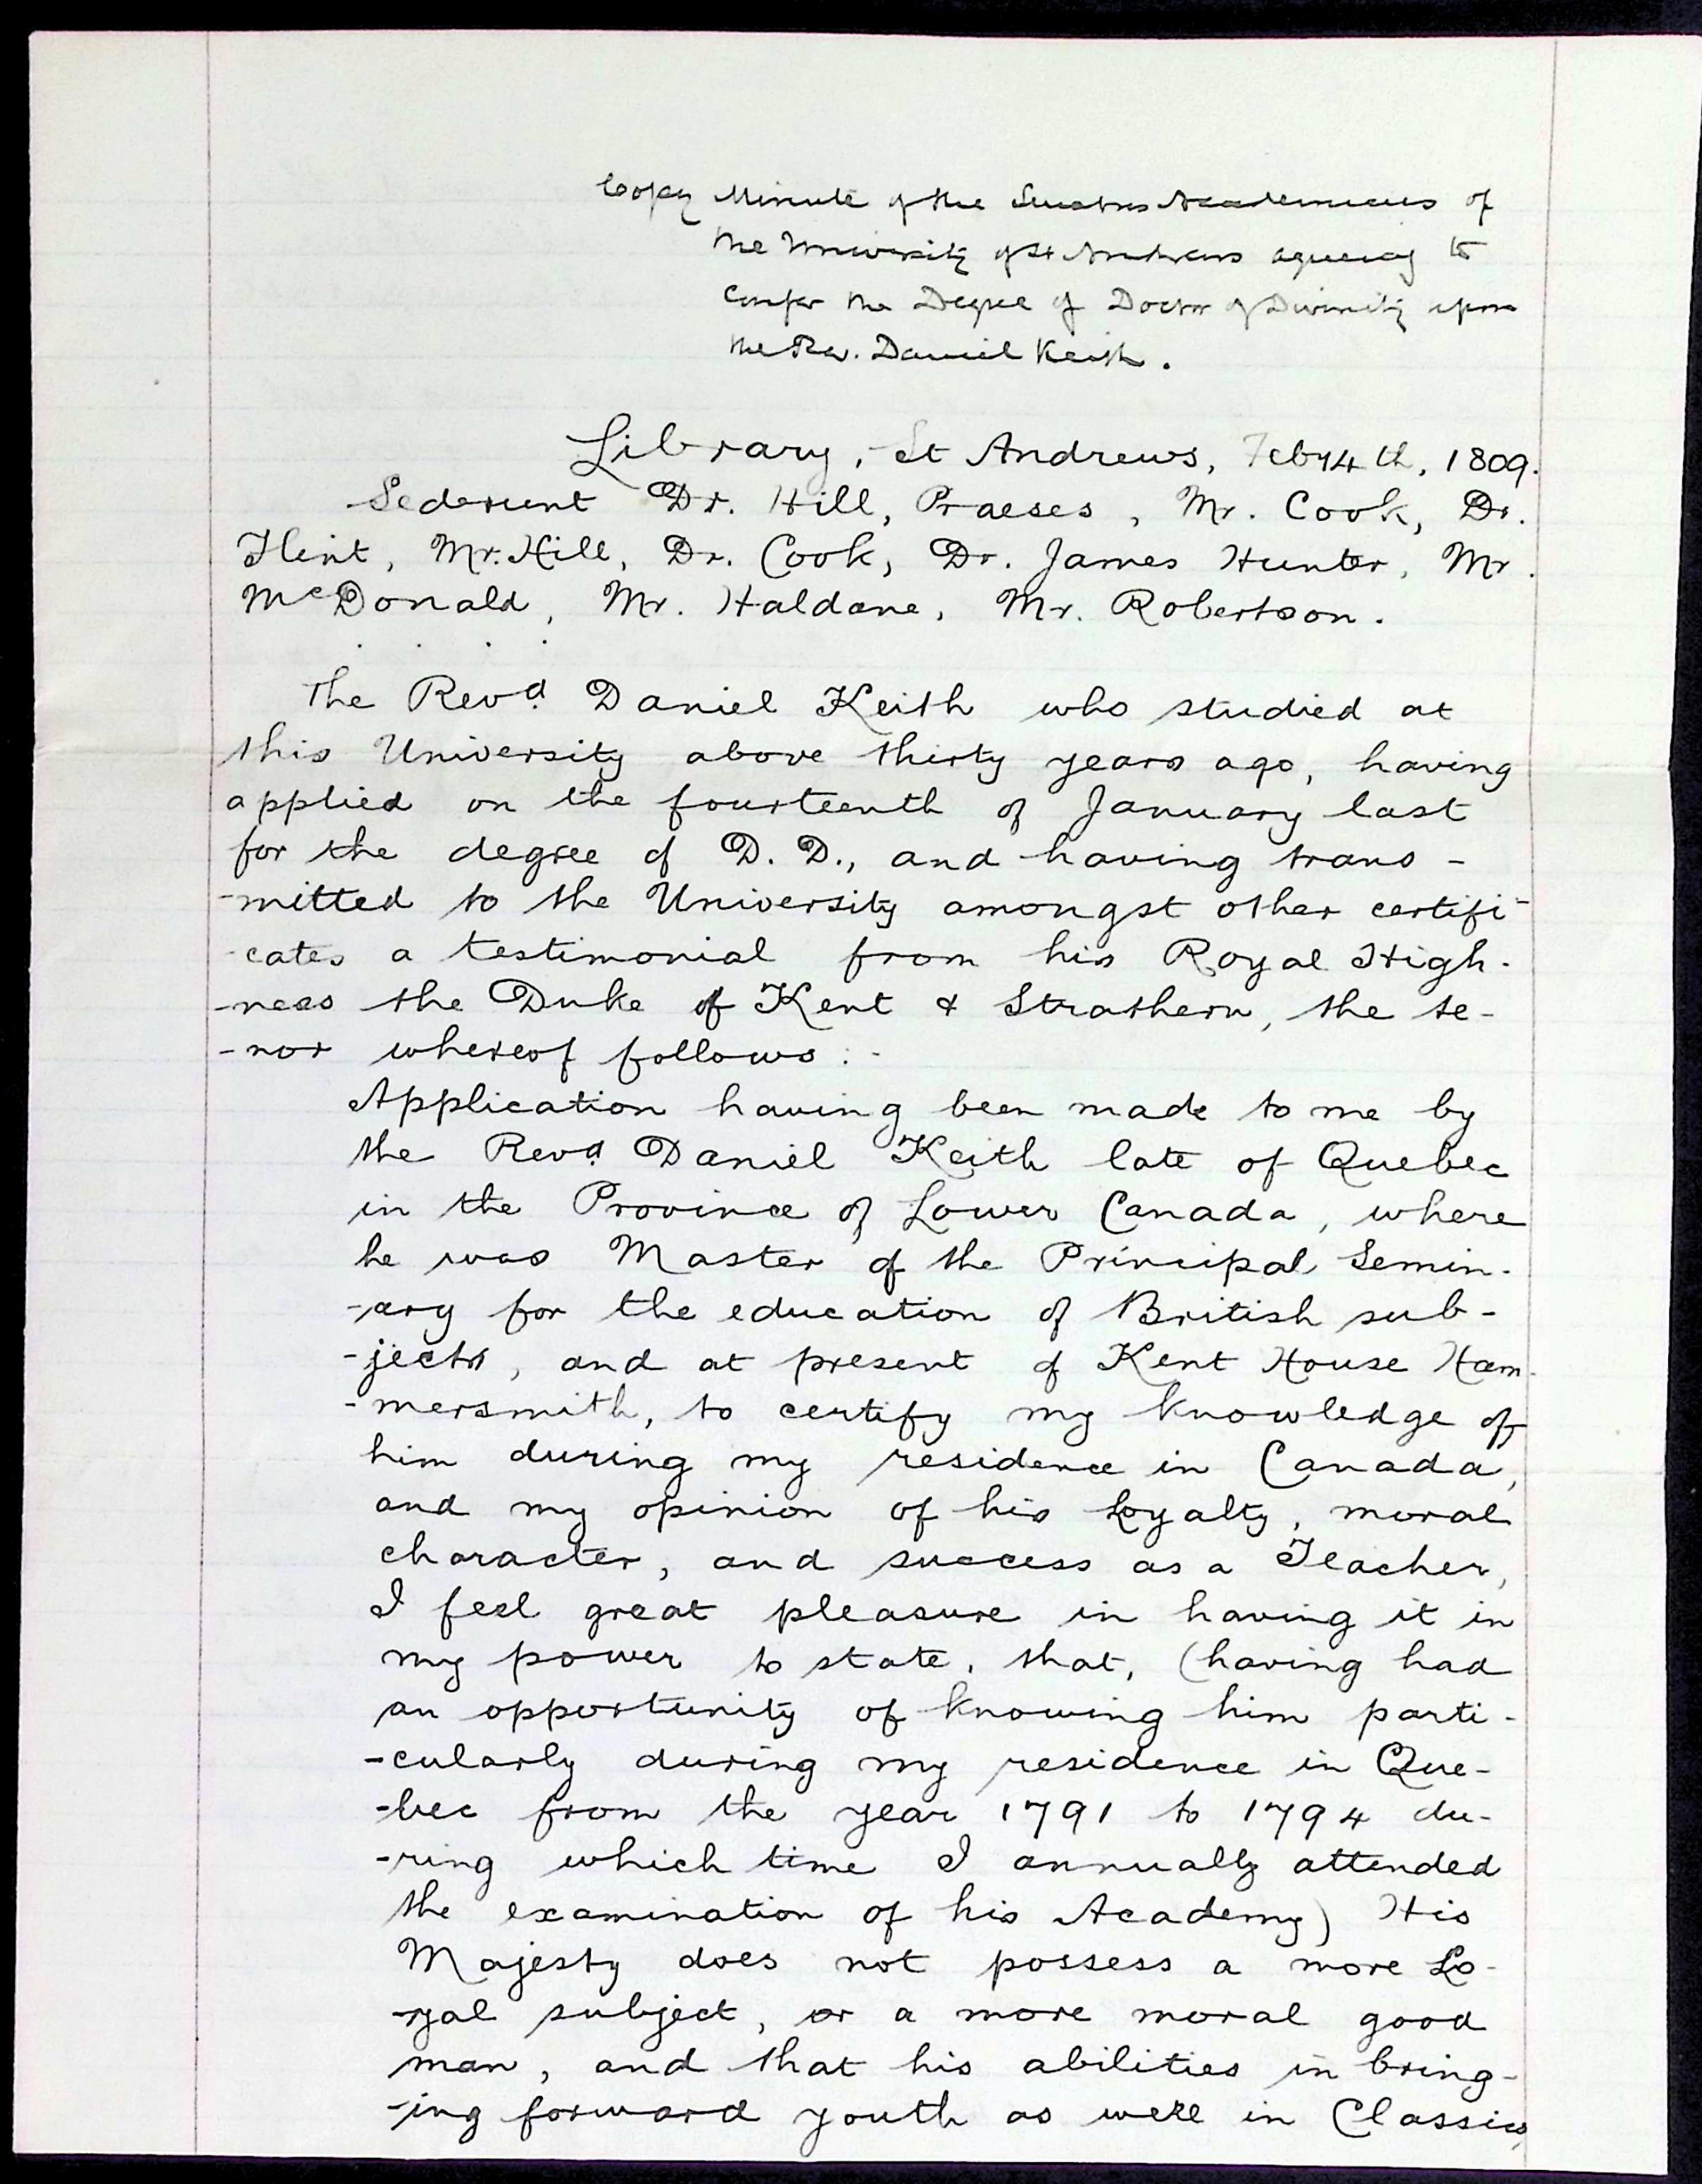 Copy Minute of the Senatus Academicus of
the University of St Andrews agreeing to
confer the Degree of Doctor of Divinity upon
the Rev. Daniel Keith.
Library, St Andrews, Feby 4th, 1809.
Sederunt Dr. Hill, Praeses, Mr. Cook, Dr.
Flint, Mr. Hill, Dr. Cook, Dr. James Hunter, Mr.
McDonald, Mr. Haldane, Mr. Robertson.
. . . .
The Revd. Daniel Keith who studied at
this University above thirty years ago, having
applied on the fourteenth of January last
for the degree of D. D., and having trans-
-mitted to the University amongst other certifi-
-cates a testimonial from his Royal High-
-ness the Duke of Kent & Strathern, the te-
-nor whereof follows:-
Application having been made to me by
the Revd. Daniel Keith late of Quebec
in the Province of Lower Canada, where
he was Master of the Principal Semin-
-ary for the education of British sub-
-jects, and at present of Kent House Ham-
-mersmith, to certify my knowledge of
him during my residence in Canada,
and my opinion of his Loyalty, moral
character, and success as a Teacher,
I feel great pleasure in having it in
my power to state, that, (having had
an opportunity of knowing him parti-
-cularly during my residence in Que-
-bec from the year 1791 to 1794 du-
-ring which time I annually attended
the examination of his Academy) His
Majesty does not possess a more Lo-
-yal subject, or a more moral good
man, and that his abilities in bring-
-ing forward youth as well in Classics,